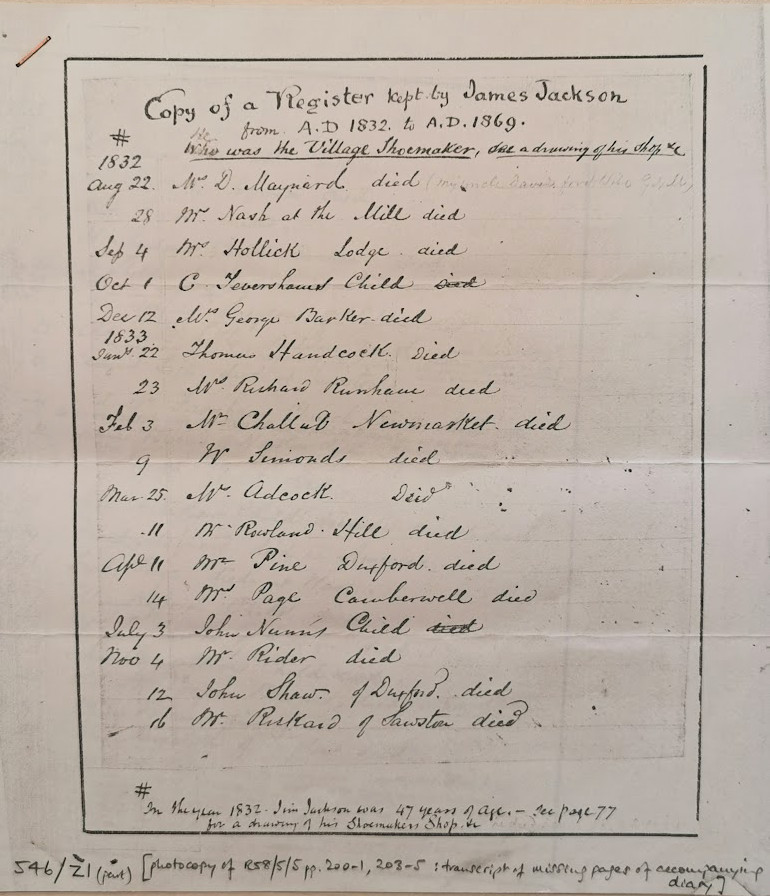 Copy of a Register kept by James Jackson
from A.D 1832. to A.D. 1869.
# He
Who was the Village Shoemaker, see a drawing of his Shop &c
1832
Aug 22. Mr. D. Maynard died (my uncle
28 Mr. Nash at the Mill died
Sep 4 Mrs Hollick Lodge. died
Oct 1 C. Tevershams Child died
Dec 12 Mrs George Barker died
1833
Janu. 22 Thomas Handcock. Died
23 Mrs Richard Runham died
Feb 3 Mr Newmarket. died
9 W Simonds died
Mar 25. Mr. Adcock. Deid
11 Mr Rowland Hill died
Apl 11 Mr Pine Duxford. died
14 Mrs Page Camberwell died
July 3 John Nunn's Child died
Nov 4 Mr. Rider died
12 John Shaw. of Duxford. died
16 Mr. Rickard of Sawston died
#
In the year 1832. Jim Jackson was 47 years of age. - see page 77
for a drawing of his Shoemakers Shop. &c
546/Z1 (part) [photocopy of R58/5/5 pp. 200-1, 203-5 : transcript of missing pages of accompanying
diary]